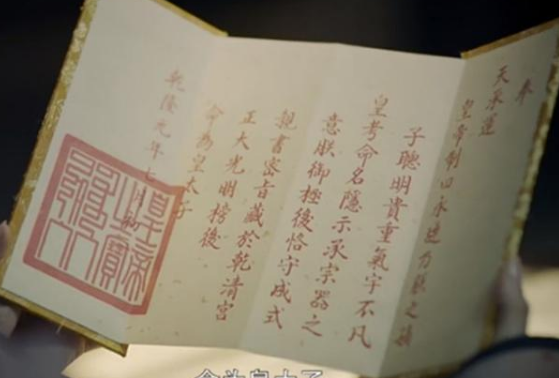 奉
天承運
皇帝制曰永璉乃朕之嫡
子聰明貴重氣宇不凡
皇考命名隱示承宗器之
意朕御極後恪守成式
親書密旨藏於乾清宮
正大光明榜後
命為皇太子
乾隆元年七月初
皇帝之寶
为皇太子